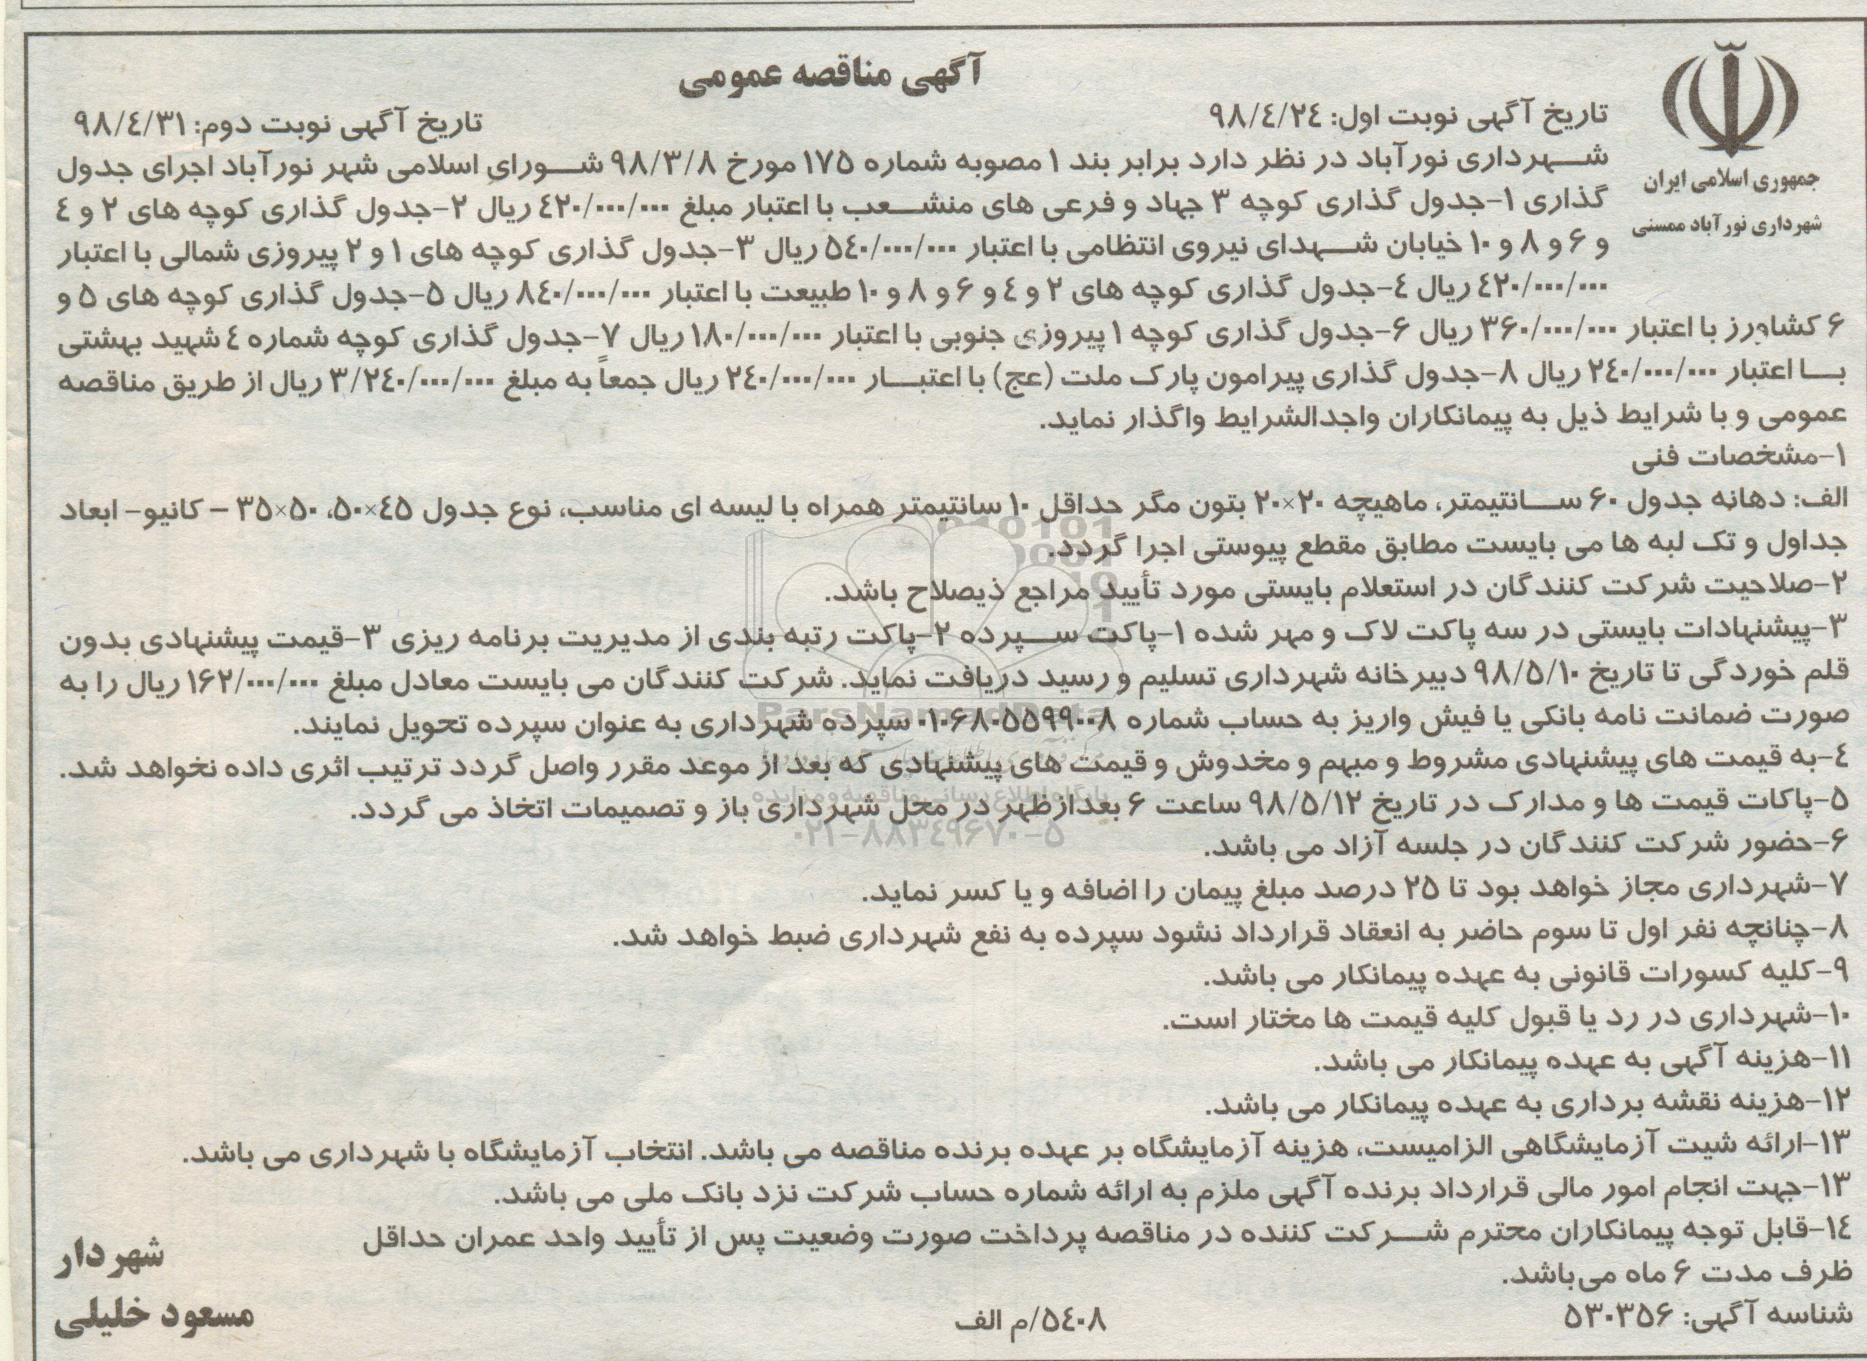 آگهی مناقصه عمومی
تاریخ آگهی نوبت اول: ۹۸/٤/۲٤
تاریخ آگهی نوبت دوم: ۹۸/٤/۳۱
جمهوری اسلامی ایران
شهرداری نورآباد ممسنی
شهرداری نورآباد در نظر دارد برابر بند ۱ مصوبه شماره ۱۷۵ مورخ ۹۸/۳/۸ شورای اسلامی شهر نورآباد اجرای جدول
گذاری ۱-جدول گذاری کوچه ۳ جهاد و فرعی های منشعب با اعتبار مبلغ ٤۲۰/۰۰۰/۰۰۰ ریال ۲-جدول گذاری کوچه های ۲ و ٤
و ۶ و ۸ و ۱۰ خیابان شهدای نیروی انتظامی با اعتبار ۵٤۰/۰۰۰/۰۰۰ ریال ۳-جدول گذاری کوچه های ۱ و ۲ پیروزی شمالی با اعتبار
٤۲۰/۰۰۰/۰۰۰ ریال ٤-جدول گذاری کوچه های ۲ و ٤ و ۶ و ۸ و ۱۰ طبیعت با اعتبار ۸٤۰/۰۰۰/۰۰۰ ریال ۵-جدول گذاری کوچه های ۵ و
۶ کشاورز با اعتبار ۳۶۰/۰۰۰/۰۰۰ ریال ۶-جدول گذاری کوچه ۱ پیروزی جنوبی با اعتبار ۱۸۰/۰۰۰/۰۰۰ ریال ۷-جدول گذاری کوچه شماره ٤ شهید بهشتی
با اعتبار ۲٤۰/۰۰۰/۰۰۰ ریال ۸-جدول گذاری پیرامون پارک ملت (عج) با اعتبار ۲٤۰/۰۰۰/۰۰۰ ریال جمعاً به مبلغ ۳/۲٤۰/۰۰۰/۰۰۰ ریال از طریق مناقصه
عمومی و با شرایط ذیل به پیمانکاران واجدالشرایط واگذار نماید.
۱-مشخصات فنی
الف: دهانه جدول ۶۰ سانتیمتر، ماهیچه ۲۰×۲۰ بتون مگر حداقل ۱۰ سانتیمتر همراه با لیسه ای مناسب، نوع جدول ٤۵×۵۰، ۵۰×۳۵ – کانیو- ابعاد
جداول و تک لبه ها می بایست مطابق مقطع پیوستی اجرا گردد.
۲-صلاحیت شرکت کنندگان در استعلام بایستی مورد تأیید مراجع ذیصلاح باشد.
۳-پیشنهادات بایستی در سه پاکت لاک و مهر شده ۱-پاکت سپرده ۲-پاکت رتبه بندی از مدیریت برنامه ریزی ۳-قیمت پیشنهادی بدون
قلم خوردگی تا تاریخ ۹۸/۵/۱۰ دبیرخانه شهرداری تسلیم و رسید دریافت نماید. شرکت کنندگان می بایست معادل مبلغ ۱۶۲/۰۰۰/۰۰۰ ریال را به
صورت ضمانت نامه بانکی یا فیش واریز به حساب شماره ۰۱۰۶۸۰۵۵۹۹۰۰۸ سپرده شهرداری به عنوان سپرده تحویل نمایند.
٤-به قیمت های پیشنهادی مشروط و مبهم و مخدوش و قیمت های پیشنهادی که بعد از موعد مقرر واصل گردد ترتیب اثری داده نخواهد شد.
۵-پاکات قیمت ها و مدارک در تاریخ ۹۸/۵/۱۲ ساعت ۶ بعدازظهر در محل شهرداری باز و تصمیمات اتخاذ می گردد.
۶-حضور شرکت کنندگان در جلسه آزاد می باشد.
۷-شهرداری مجاز خواهد بود تا ۲۵ درصد مبلغ پیمان را اضافه و یا کسر نماید.
۸-چنانچه نفر اول تا سوم حاضر به انعقاد قرارداد نشود سپرده به نفع شهرداری ضبط خواهد شد.
۹-کلیه کسورات قانونی به عهده پیمانکار می باشد.
۱۰-شهرداری در رد یا قبول کلیه قیمت ها مختار است.
۱۱-هزینه آگهی به عهده پیمانکار می باشد.
۱۲-هزینه نقشه برداری به عهده پیمانکار می باشد.
۱۳-ارائه شیت آزمایشگاهی الزامیست، هزینه آزمایشگاه بر عهده برنده مناقصه می باشد. انتخاب آزمایشگاه با شهرداری می باشد.
۱۳-جهت انجام امور مالی قرارداد برنده آگهی ملزم به ارائه شماره حساب شرکت نزد بانک ملی می باشد.
۱٤-قابل توجه پیمانکاران محترم شرکت کننده در مناقصه پرداخت صورت وضعیت پس از تأیید واحد عمران حداقل
ظرف مدت ۶ ماه می‌باشد.
شهردار
مسعود خلیلی
شناسه آگهی: ۵۳۰۳۵۶
۵٤۰۸/م الف
ParsNamadData
پایگاه اطلاع رسانی مناقصه و مزایده
۰۲۱-۸۸۳۴۹۶۷۰-۵